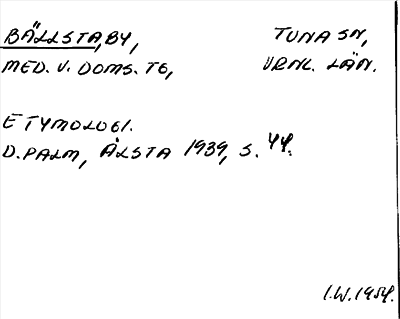 BÄLLSTA, BY, TUNA SN,
MED. V. DOMS. TG, VRML. LÄN.
ETYMOLOGI.
D. PALM, ÅLSTA 1939, S. 44.
I.W. 1954.